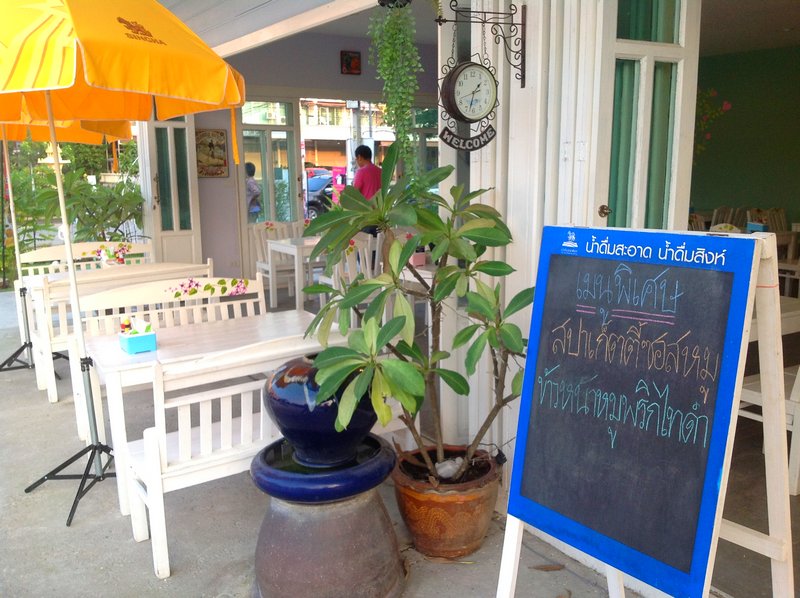 SINGHA
WELCOME
น้ำดื่มสะอาด น้ำดื่มสิงห์
เมนูพิเศษ
สปาเก็ตตี้ซอสหมู
ข้าวหน้าหมูพริกไทดำ